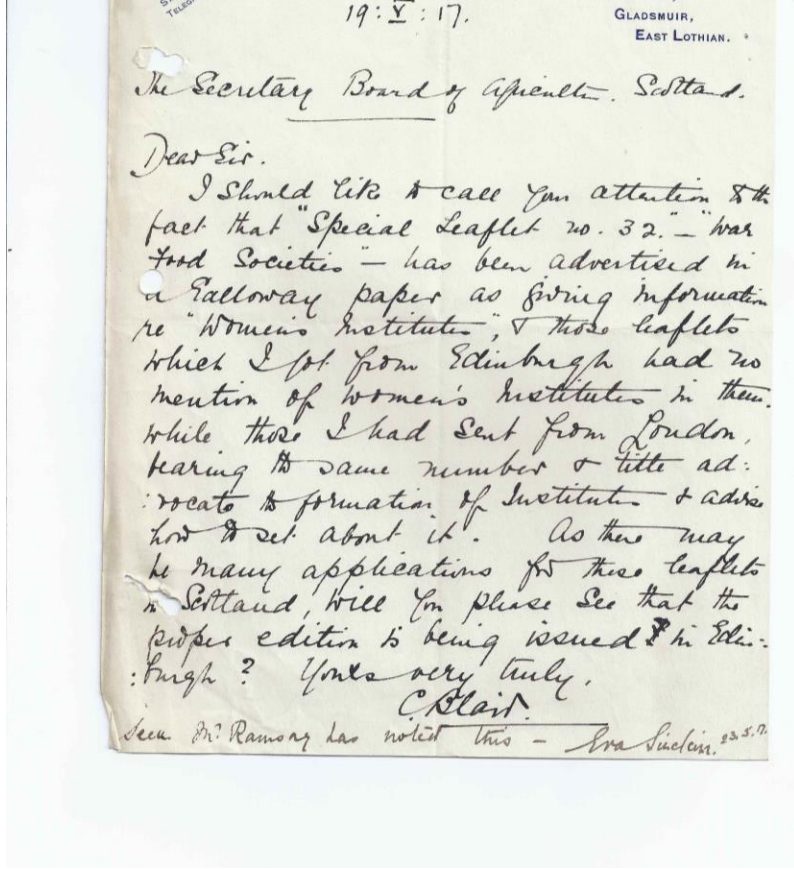 GLADSMUIR,
EAST LOTHIAN.
19 : V : 17.
The Secretary Board of Agricultr. Scotland.
Dear Sir.
I should like to call your attention to the
fact that "Special Leaflet no. 32." – "War
Food Societies" – has been advertised in
a Galloway paper as giving information
re "Women's Institutes", & those leaflets
which I got from Edinburgh had no
mention of Women's Institutes in them.
while those I had sent from London,
bearing the same number & title ad:
:vocate the formation of Institutes & advise
how to set about it. As there may
be many applications for these leaflets
in Scotland, will you please see that the
proper edition is being issued in Edin:
:burgh? Yours very truly,
C. Blair.
Seen Mr Ramsay has noted this – Eva Sinclair. 23.5.17.